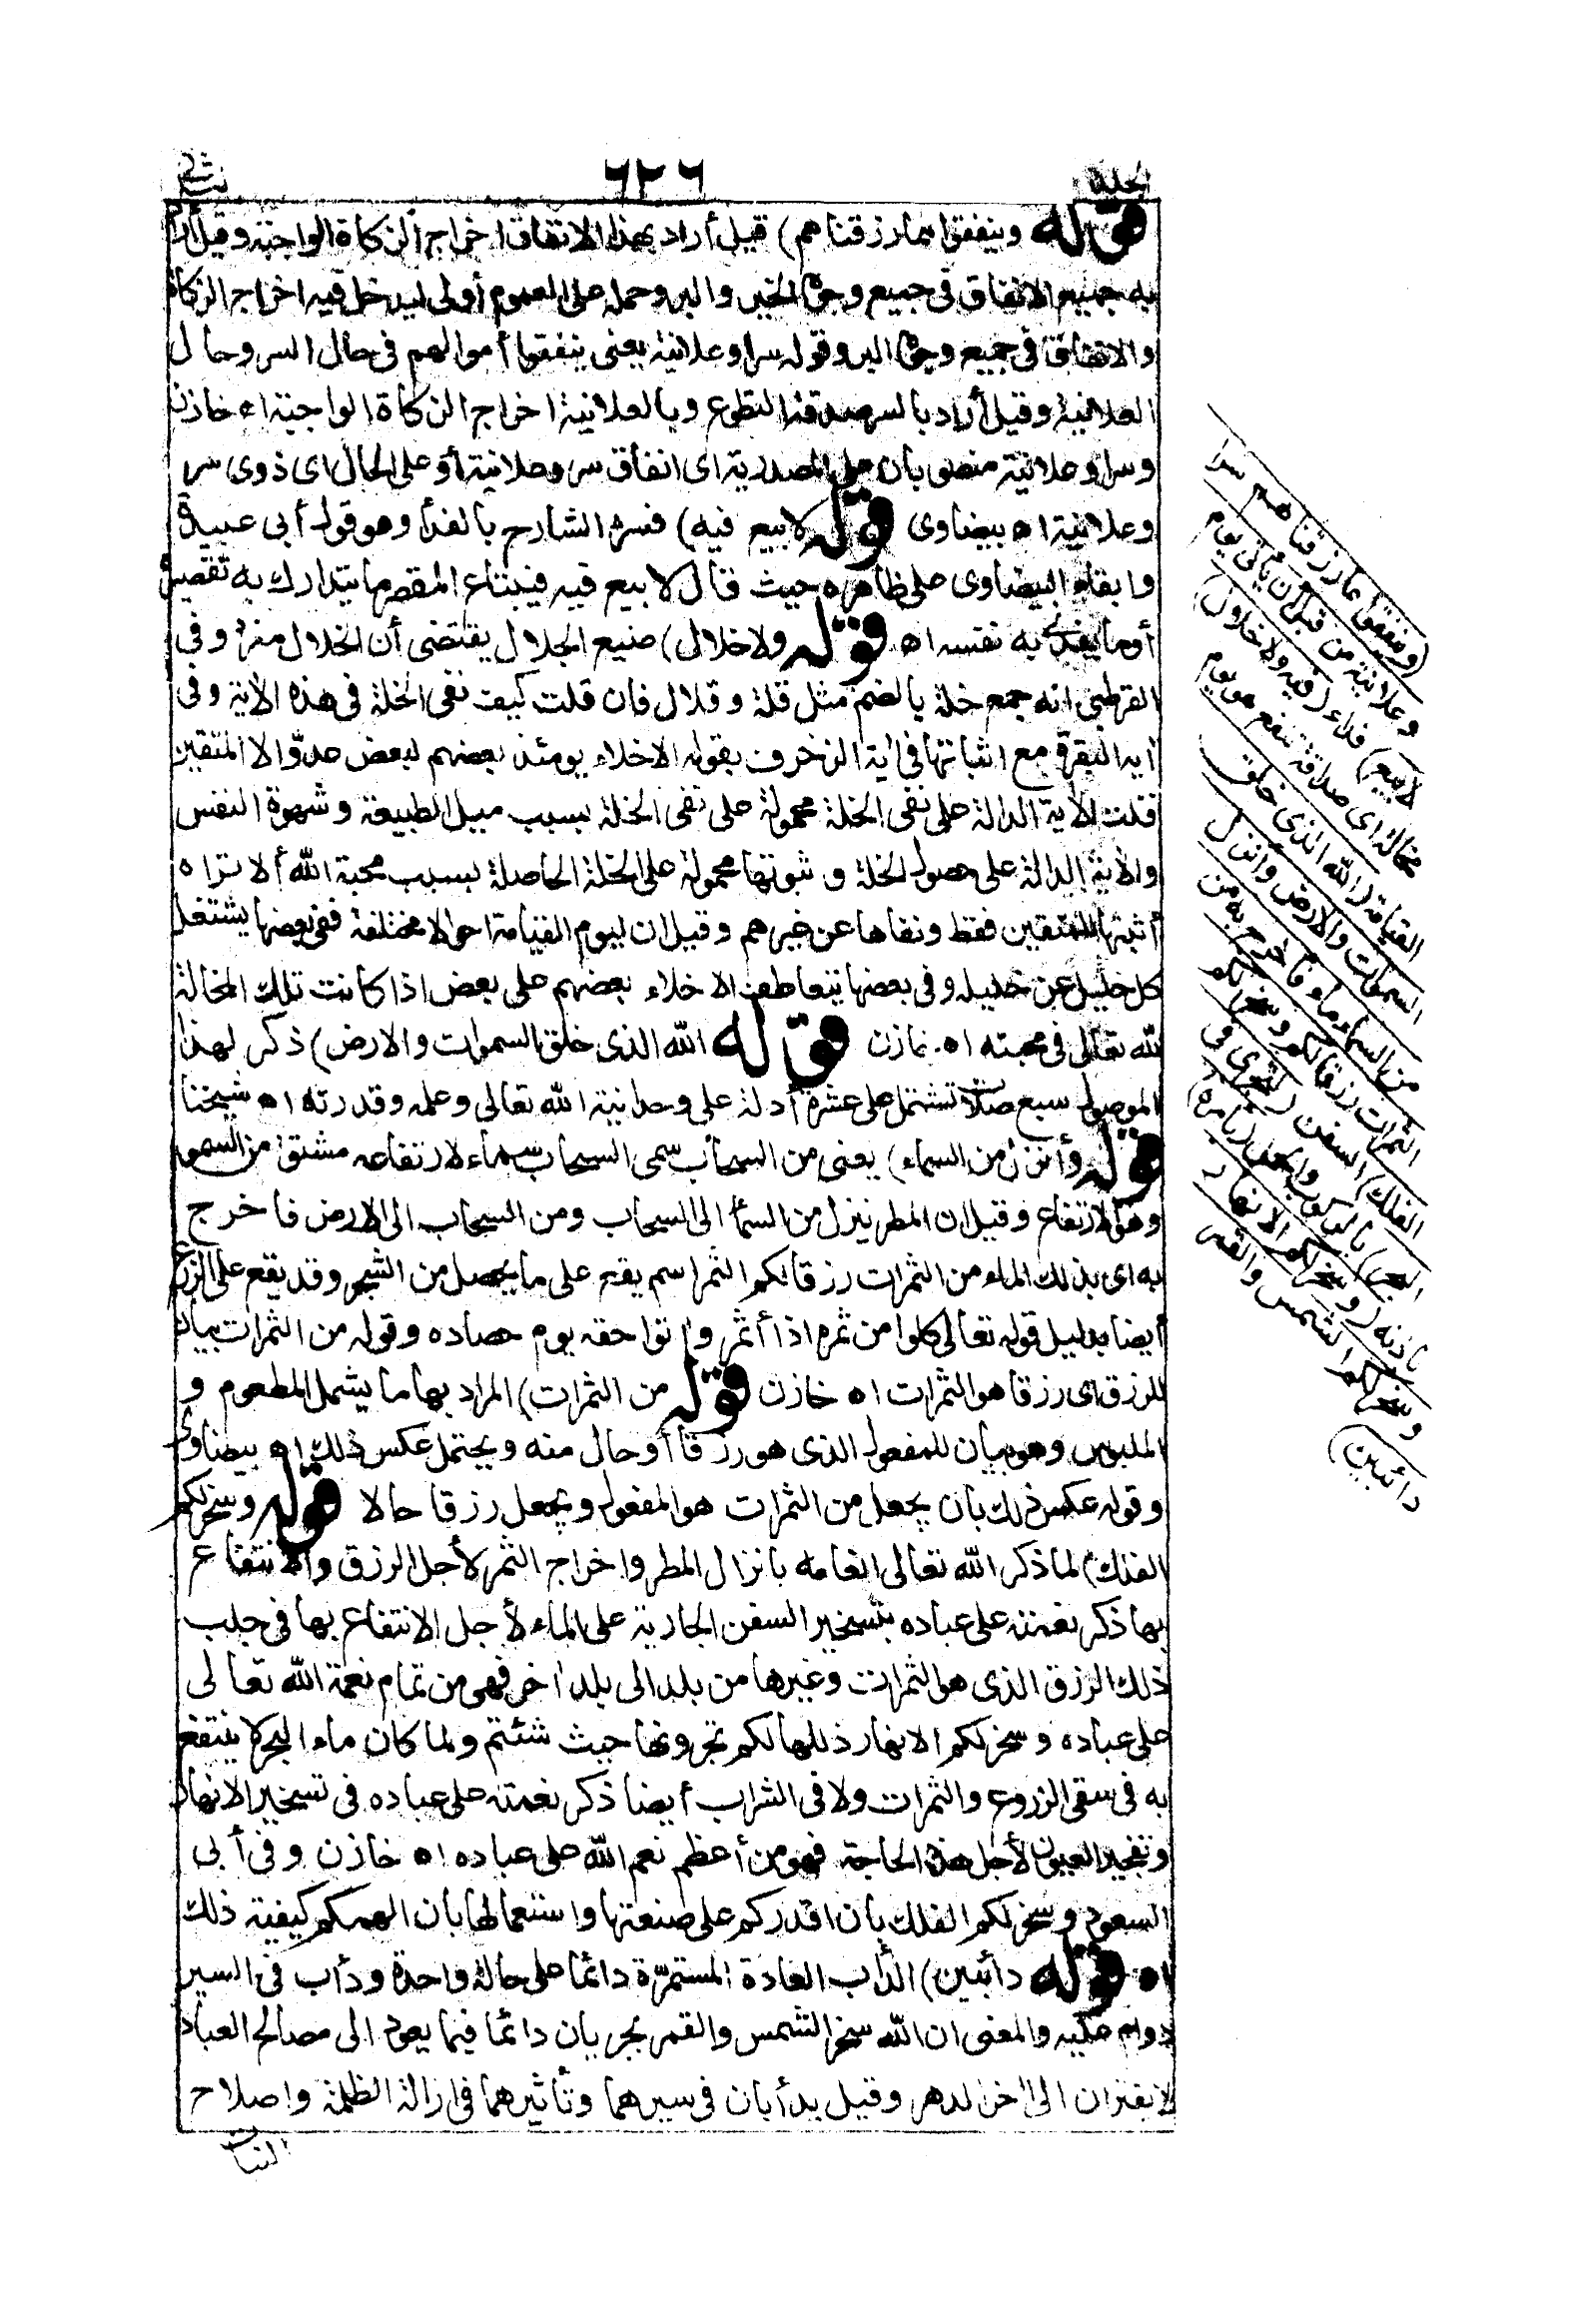 ٦٢٦
قوله وينفقوا مما رزقناهم) قيل أراد بهذا الانفاق اخراج الزكاة الواجبة وقيل أراد
به جميع الانفاق في جميع وجوه الخير والبر وحمله على العموم أولى ليدخل فيه اخراج الزكاة
والانفاق في جميع وجوه البر وقوله سرا وعلانية يعنى ينفقوا أموالهم في حال السر وحال
العلانية وقيل أراد بالسر صدقة التطوع وبالعلانية اخراج الزكاة الواجبة اه خازن
وسرا وعلانية منصوبان على المصدرية اى انفاق سر وعلانية أو على الحال اى ذوى سر
وعلانية اه بيضاوى قوله لا بيع فيه) فسره الشارح بالفداء وهو قول أبى عبيدة
وابقاه البيضاوى على ظاهره حيث قال لا بيع فيه فيبتاع المقصر ما يتدارك به تقصيره
أو ما يفدى به نفسه اه قوله ولا خلال) صنيع الجلال يقتضى أن الخلال مفرد وفي
القرطبى انه جمع خلة بالضم مثل قلة وقلال فان قلت كيف نفى الخلة في هذه الآية وفي
آية البقرة مع اثباتها في آية الزخرف بقوله الاخلاء يومئذ بعضهم لبعض عدوّ الا المتقين
قلت الآية الدالة على نفى الخلة محمولة على نفى الخلة بسبب ميل الطبيعة وشهوة النفس
والآية الدالة على حصول الخلة وثبوتها محمولة على الخلة الحاصلة بسبب محبة الله ألا تراه
أثبتها للمتقين فقط ونفاها عن غيرهم وقيل ان ليوم القيامة احوالا مختلفة ففى بعضها يشتغل
كل خليل عن خليله وفي بعضها يتعاطف الاخلاء بعضهم على بعض اذا كانت تلك المخالة
لله تعالى في محبته اه خازن قوله الله الذى خلق السموات والارض) ذكر لهذا
الموصول سبع صلات تشتمل على عشرة أدلة على وحدانية الله تعالى وعلمه وقدرته اه شيخنا
قوله وأنزل من السماء) يعنى من السحاب سمى السحاب سماء لارتفاعه مشتق من السمو
وهو الارتفاع وقيل ان المطر ينزل من السماء الى السحاب ومن السحاب الى الارض فأخرج
به اى بذلك الماء من الثمرات رزقا لكم الثمر اسم يقع على ما يحصل من الشجر وقد يقع على الزرع
أيضا بدليل قوله تعالى كلوا من ثمره اذا أثمر وآتوا حقه يوم حصاده وقوله من الثمرات بيان
للرزق اى رزقا هو الثمرات اه خازن قوله من الثمرات) المراد بها ما يشمل المطعوم و
الملبوس وهو بيان للمفعول الذى هو رزقا أو حال منه ويحتمل عكس ذلك اه بيضاوى
وقوله عكس ذلك بان يجعل من الثمرات هو المفعول ويجعل رزقا حالا قوله وسخر لكم
الفلك) لما ذكر الله تعالى انعامه بانزال المطر واخراج الثمر لأجل الرزق والانتفاع
بها ذكر نعمته على عباده بتسخير السفن الجارية على الماء لأجل الانتفاع بها في جلب
ذلك الرزق الذى هو الثمرات وغيرها من بلد الى بلد آخر فهى من تمام نعمة الله تعالى
على عباده وسخر لكم الانهار ذللها لكم تجرونها حيث شئتم ولما كان ماء البحر لا ينتفع
به في سقى الزروع والثمرات ولا في الشراب أيضا ذكر نعمته على عباده في تسخير الانهار
وتفجير العيون لأجل هذه الحاجة فهو من أعظم نعم الله على عباده اه خازن وفي أبى
السعود وسخر لكم الفلك بان اقدركم على صنعتها واستعمالها بان الهمكم كيفية ذلك
اه قوله دائبين) الدأب العادة المستمرّة دائما على حالة واحدة ودأب في السير
دوام عليه والمعنى ان الله سخر الشمس والقمر يجريان دائما فيما يعود الى مصالح العباد
لا يفتران الى آخر الدهر وقيل يدأبان في سيرهما وتأثيرهما في ازالة الظلمة واصلاح
النبات
(وينفقوا مما رزقناهم سرا
وعلانية من قبل أن يأتى يوم
لا بيع) فداء (فيه ولا خلال)
مخالة اى صداقة تنفع هو يوم
القيامة (الله الذى خلق
السموات والارض وانزل
من السماء ماء فأخرج به من
الثمرات رزقا لكم وسخر لكم
الفلك) السفن (لتجرى فى
البحر) بالركوب والحمل (بأمره)
باذنه (وسخر لكم الانهار
وسخر لكم الشمس والقمر
دائبين)